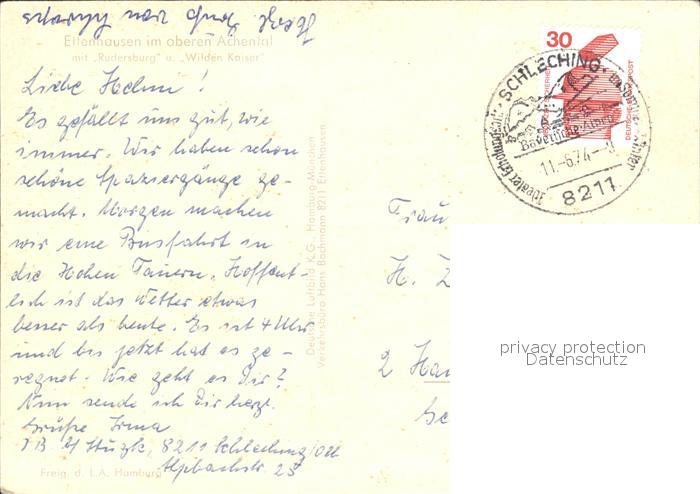 Ettenhausen im oberen Achental
mit „Rudersburg" u. „Wilden Kaiser"
Liebe Helma!
Es gefällt uns gut, wie
immer. Wir haben schon
schöne Spaziergänge ge-
macht. Morgen machen
wir eine Busfahrt in
die Hohen Tauern. Hoffent-
lich ist das Wetter etwas
besser als heute. Es ist 4 Uhr
und bis jetzt hat es ge-
regnet. Wie geht es Dir?
Nun sende ich Dir herzl.
Grüße Irma
8211 Schleching/Obb
Alpbachstr. 25
Freig. d. L.A. Hamburg
Deutsche Luftbild K.G. Hamburg-München
Verkehrsbüro Hans Bachmann 8211 Ettenhausen
30
DEUTSCHE BUNDESPOST
SCHLECHING
Idealer Erholungsort
Bayerische Alpen
11.-6.74
8211
Frau
H.
2 Ha
privacy protection
Datenschutz